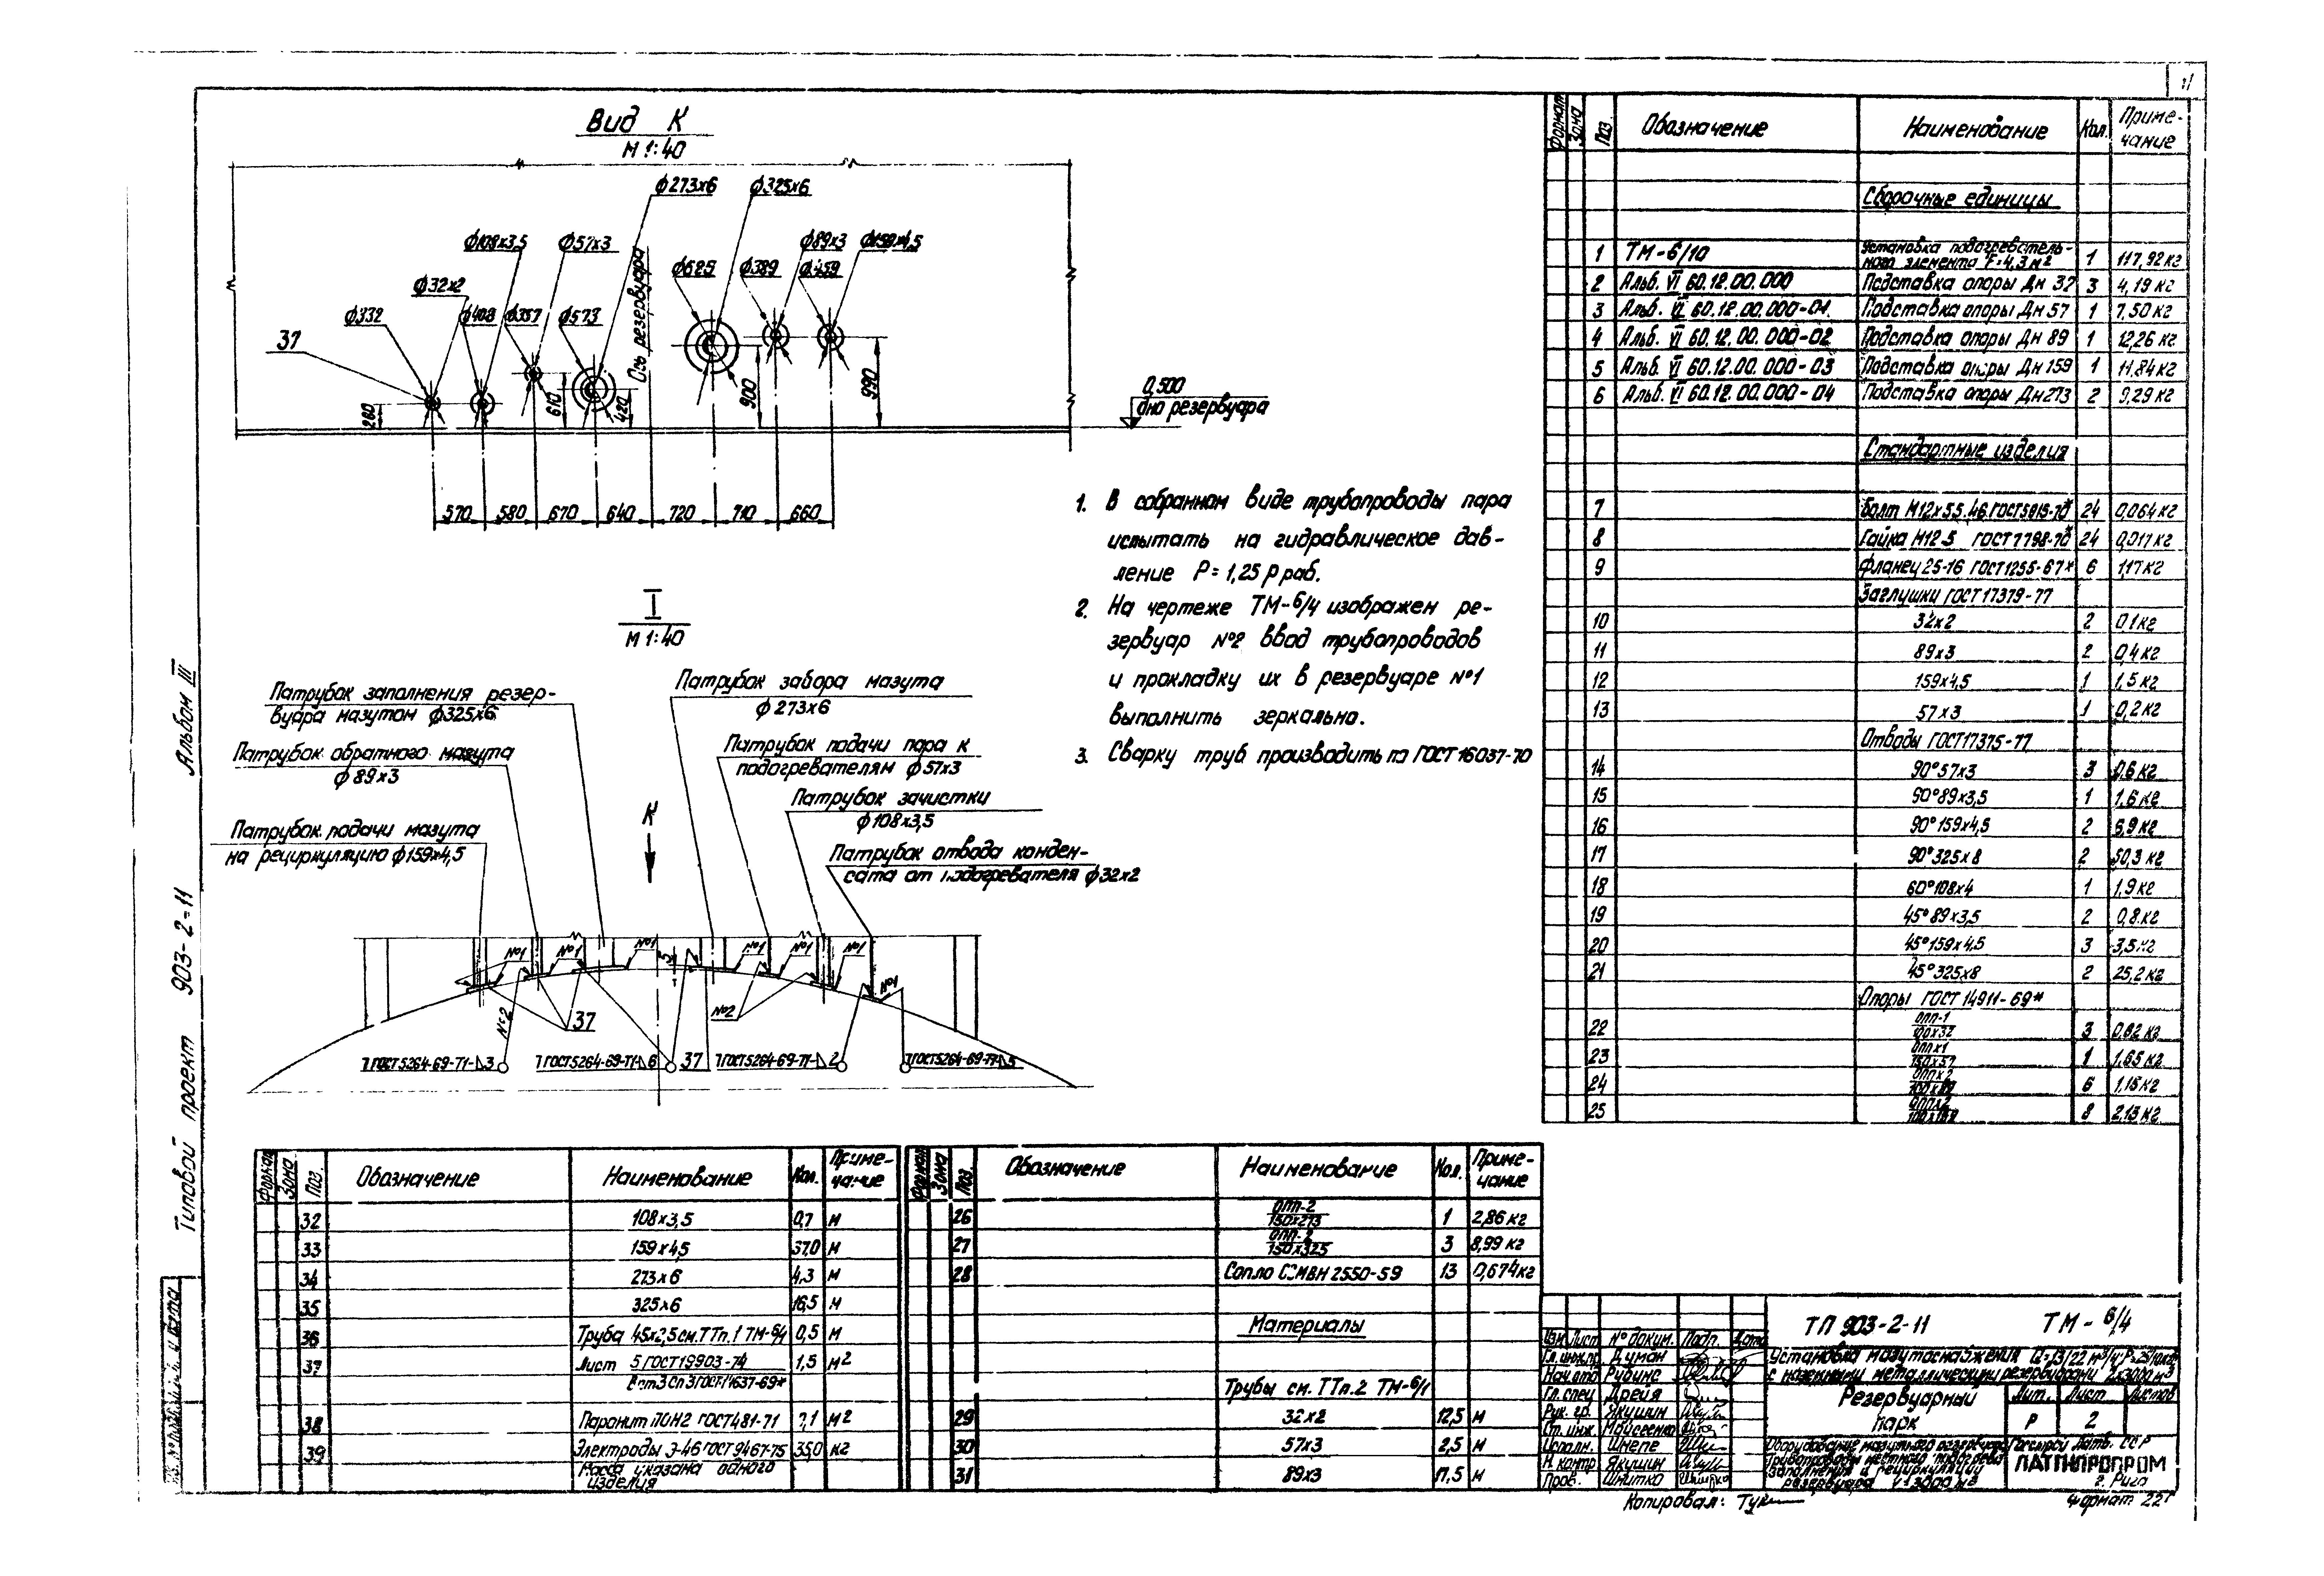 Вид К
М 1:40
ф273х6
ф325х6
ф108х3,5
ф57х3
ф89х3
ф159х4,5
ф32х2
ф625
ф389
ф459
ф332
ф408
ф357
ф573
37
Ось резервуара
260
610
420
900
990
0,500
дно резервуара
570 580 670 640 720 710 660
I
М 1:40
Патрубок заполнения резер-
вуара мазутом ф325х6
Патрубок забора мазута
ф273х6
Патрубок обратного мазута
ф89х3
Патрубок подачи пара к
подогревателям ф57х3
Патрубок зачистки
ф108х3,5
Патрубок подачи мазута
на рециркуляцию ф159х4,5
К
Патрубок отвода конден-
сата от подогревателя ф32х2
№1 №1 №1 №1 №1 №1 №1
5
№2
37
№2
ГОСТ5264-69-Т1-△3
ГОСТ5264-69-Т1-△6
37
ГОСТ5264-69-Т1-△2
ГОСТ5264-69-Т1-△3
1. В собранном виде трубопроводы пара
испытать на гидравлическое дав-
ление Р=1,25 Рраб.
2. На чертеже ТМ-6/4 изображен ре-
зервуар №2 ввод трубопроводов
и прокладку их в резервуаре №1
выполнить зеркально.
3. Сварку труб производить по ГОСТ 16037-70
Формат Зона Поз. Обозначение Наименование Кол. Приме-
чание
Сборочные единицы
1 ТМ-6/10 Установка подогреватель-
ного элемента F=4,3м2 1 117,92кг
2 Альб. VI 60.12.00.000 Подставка опоры Дн 32 3 4,19 кг
3 Альб. VI 60.12.00.000-01. Подставка опоры Дн 57 1 7,50 кг
4 Альб. VI 60.12.00.000-02 Подставка опоры Дн 89 1 12,26 кг
5 Альб. VI 60.12.00.000-03 Подставка опоры Дн 159 1 11,84кг
6 Альб. VI 60.12.00.000-04 Подставка опоры Дн273 2 9,29 кг
Стандартные изделия
7 Болт М12х55.46 24 0,064кг
8 Гайка М12.5 24 0,017кг
9 Фланец 25-16 ГОСТ1255-67* 6 1,17кг
Заглушки ГОСТ17379-77
10 32х2 2 0,1кг
11 89х3 2 0,4кг
12 159х4,5 1 1,5 кг
13 57х3 1 0,2 кг
Отводы ГОСТ17375-77
14 90°57х3 3 0,6 кг
15 90°89х3,5 1 1,6 кг
16 90°159х4,5 2 6,9 кг
17 90°325х8 2 50,3 кг
18 60°108х4 1 1,9кг
19 45°89х3,5 2 0,8кг
20 45°159х4,5 3 3,5кг
21 45°325х8 2 25,2кг
Опоры ГОСТ 14911-69*
22 ОПП-1
100х32 3 0,82 кг
23 150х57 1 1,65кг
24 100х89 6 1,15кг
25 8 2,13 кг
Формат Зона Поз. Обозначение Наименование Кол. Приме-
чание
32 108х3,5 0,7 м
33 159х4,5 37,0 м
34 273х6 4,3 м
35 325х6 16,5 м
36 Труба 45х2,5 см. ТТп.1 ТМ-6/1 0,5 м
37 Лист 5 ГОСТ19903-74 1,5 м2
38 Паронит ПОН2 ГОСТ481-71 м2
39 Электроды Э-46 ГОСТ9467-75 35,0 кг
Масса указана одного
изделия
Формат Зона Поз. Обозначение Наименование Кол. Приме-
чание
26 ОПП-2
150х273 1 2,86кг
27 ОПП-2
150х325 3 8,99 кг
28 Сопло МВН 2550-59 13 0,674кг
Материалы
Трубы см. ТТп.2 ТМ-6/1
29 32х2 12,5 м
30 57х3 2,5 м
31 89х3 17,5 м
Изм. Лист №докум. Подп. Дата
Гл. инж.пр. Думан
Нач.отд. Рубинс
Гл. спец. Дрейя
Рук. гр. Якушин
Ст. инж. Моисеенко
Исполн. Шнепе
Н. контр. Якушин
Пров. Шнитко
ТП 903-2-11 ТМ-6/4
Установка мазутоснабжения
с наземными металлическими резервуарами 2х3000м3
Резервуарный
парк
Лит. Лист Листов
Р 2
Оборудование мазутного резервуара
Трубопроводы местного подогрева
заполнения и рециркуляции
резервуара V=3000м3
Госстрой Латв. ССР
ЛАТГИПРОПРОМ
г. Рига
Копировал:
Формат 22Г
Типовой проект 903-2-11 Альбом III